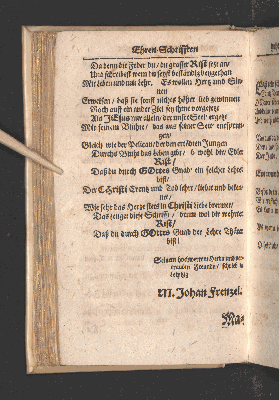 Ehren-Schrifften
Da denn die Feder du / du grosser Rist setzt an /
Und schreibest wenn du seyst beständig
Mit Leben und mit Lehr. Es wollen Hertz und Sin-
nen
Erweisen / daß sie sonst nichts höher lieb gewinnen
Noch auff ein ander Ziel seyn ihme vergetzt
Als JEsus nur allein / der unsre Seel ergetzt
Mit seinem Bluhte / das aus seiner Seit entsprun-
gen /
Gleich wie der Pelican / der den ertödten Jungen
Durchs Bluht das Leben gibt / O wohl dir / Edler
Rist /
Daß du durch GOttes Gnad' ein solcher Lehrer
bist /
Der Christi Creutz und Tod lehrt / liebet und beken-
net /
Wie sehr das Hertze stets in Christi Liebe brennet /
Das zeuget diese Schrifft / drum wol dir wehrter
Rist /
Daß du durch GOttes Gnad der Lehre
bist!
Seinem hochwerthen Hertz und ver-
trauten Freunde / schrieb in
Leipzig
M. Johan Frenzel.
Ma